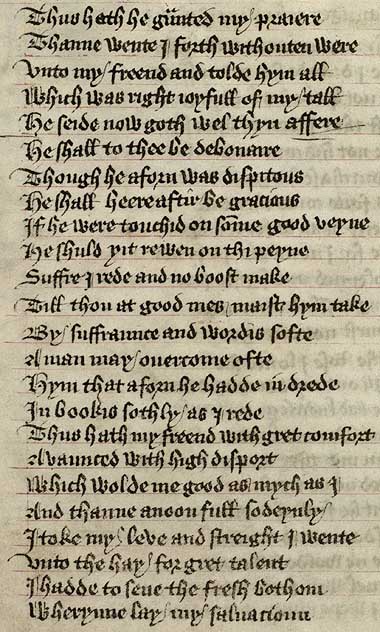 Thus hath he gūnted my praiere
Thanne wente I forth withouten were
Vnto my freend and tolde hym all
Which was right ioyfull of my tall
He seide now goth wel thyn affere
He shall to thee be debonaire
Though he aforn was dispitous
He shall heereaftir be gracious
If he were touchid on som̄e good veyne
He shuld yit rewen on thi peyne
Suffre I rede and no boost make
Till thou at good mes maist hym take
By suffraunce and wordis softe
A man may ouercome ofte
Hym that aforn he hadde in drede
In bookis sothly as I rede
Thus hath my freend with gret comfort
Avaunced with high disport
Which wolde me good as mych as I
And thanne anoon full sodeynly
I toke my leve and streight I wente
Vnto the hay for gret talent
I hadde to seue the fresh bothom
Wherynne lay my saluacioun